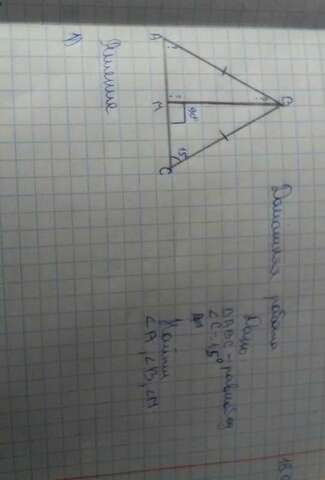 Домашняя работа
Дано:
△ABC - равнобед
∠C = 15°
Найти
∠A, ∠B, ∠M
A
M
90°
15°
C
B
Решение
1)